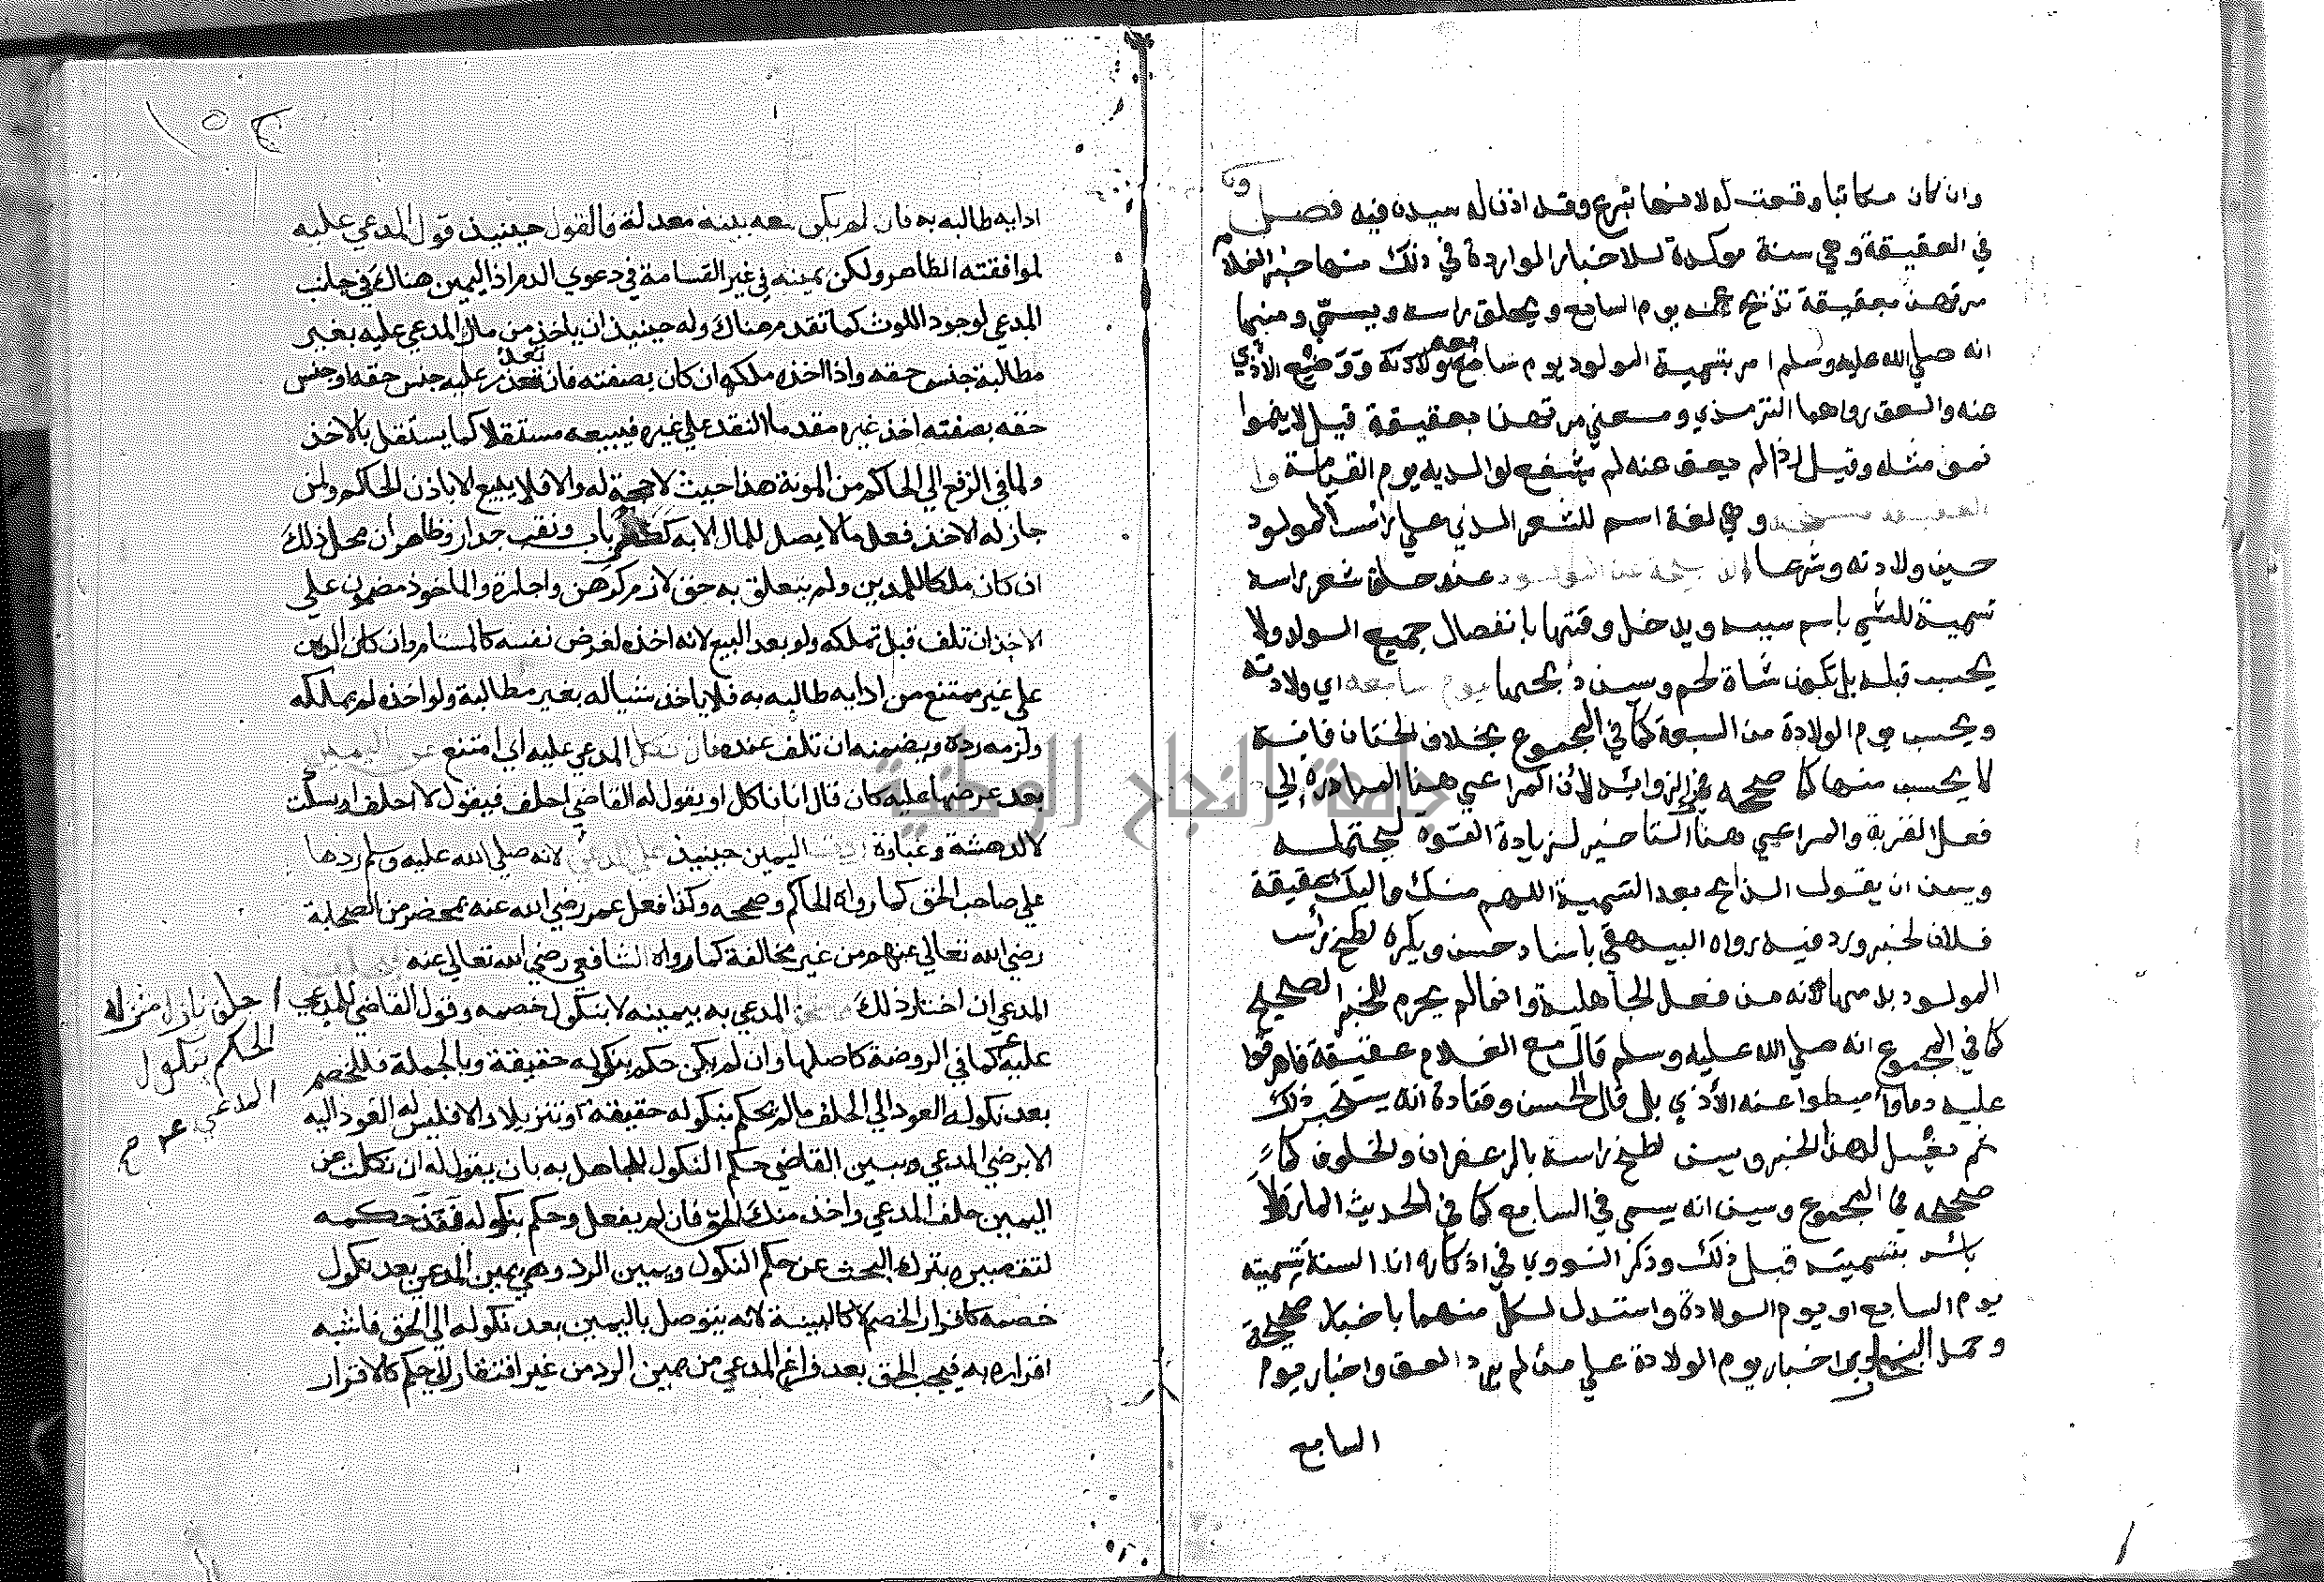 وان كان مكاتبا وقعت له لانها تبرع وقد اذن له سيده فيه فصل
في العقيقة وهي سنة موكدة للاخبار الواردة في ذلك منها خبر الغلام
مرتهن بعقيقة تذبح عنه يوم السابع ويحلق راسه ويسمي ومنها
انه صلي الله عليه وسلم امر بتسمية المولود يوم سابع ولادته ووضع الاذي
عنه والعق رواهما الترمذي ومعني مرتهن بعقيقة قيل لا ينموا
نمو مثله وقيل اذا لم يعق عنه لم يشفع لوالديه يوم القيامة
وهي لغة اسم للشعر الذي علي رأس المولود
حين ولادته وشرعا عند حلق شعر راسه
تسمية للشي باسم سببه ويدخل وقتها بانفصال جميع الولد ولا
يحسب قبله بل تكون شاة لحم وسن ذبحها يوم سابعه اي ولادته
ويحسب يوم الولادة من السبعة كما في المجموع بخلاف الختان فانه
لا يحسب منها كما صححه في الزوائد لأن المراعي هنا المبادرة إلي
فعل القربة والمراعي هنا التأخير لزيادة القوة ليحتمله
ويسن ان يقول الذابح بعد التسمية اللهم منك واليك عقيقة
فلان لخبر ورد فيه رواه البيهقي باسناد حسن ويكره لطخ رأس
المولود بدمها لأنه من فعل الجاهلية وانما لم يحرم للخبر الصحيح
كما في المجموع انه صلي الله عليه وسلم قال مع الغلام عقيقة فاهرقوا
عليه دما واميطوا عنه الأذي بل قال الحسن وقتادة انه يستحب ذلك
ثم يغسل لهذا الخبر ويسن لطخ راسه بالزعفران والخلوق كما
صححه في المجموع وسين انه يسمي في السابع كما في الحديث المار ولا
بأس بتسميته قبل ذلك وذكر النووي في اذكاره ان السنة تسميته
يوم السابع او يوم الولادة واستدل لكل منهما باخبار صحيحة
وحمل البخاري اخبار يوم الولادة علي من لم يرد العق واخبار يوم
السابع
١٥٢
ادايه طالبه به فان لم يكن معه بينة معدلة فالقول حينيذ قول المدعي عليه
لموافقته الظاهر ولكن بيمينه في غير القسامة في دعوي الدم اذ اليمين هناك في جانب
المدعي لوجود اللوث كما تقدم هناك وله حينيذ ان ياخذ من مال المدعي عليه بغير
مطالبة جنس حقه واذا اخذه ملكه ان كان بصفته فان تعذر عليه جنس حقه او جنس
حقه بصفته اخذ غيره مقدما النقد علي غيره فيبيعه مستقلا كما يستقل بالاخذ
ولما في الرفع الي الحاكم من المونة هذا حيث لا حجة له والا فلا يبيع الا باذن الحاكم ولمن
جاز له الاخذ فعل ما لا يصل للمال الا به ككسر باب ونقب جدار وظاهر ان محل ذلك
ان كان ملكا للمدين ولم يتعلق به حق لازم كرهن واجارة والماخوذ مضمون علي
الاخذ ان تلف قبل تملكه ولو بعد البيع لانه اخذه لغرض نفسه كالمستام وان كان الدين
علي غير ممتنع من ادايه طالبه به فلا ياخذ شيا له بغير مطالبة ولو اخذه لم يملكه
ولزمه رده ويضمنه ان تلف عنده فان نكل المدعي عليه اي امتنع عن اليمين
بعد عرضها عليه كان قال انا ناكل او يقول له القاضي احلف فيقول لا احلف او يسكت
لا لدهشة وغباوة اليمين حينيذ علي المدعي لانه صلي الله عليه وسلم ردها
علي صاحب الحق كما رواه الحاكم وصححه وكذا فعل عمر رضي الله عنه بمحضر من الصحابة
رضي الله تعالي عنهم من غير مخالفة كما رواه الشافعي رضي الله تعالي عنه
المدعي ان اختار ذلك المدعي به بيمينه لا بنكول خصمه وقول القاضي للمدعي
عليه كما في الروضة كاصلها وان لم يكن حكم بنكوله حقيقة وبالجملة فللخصم
بعد نكوله العود الي الحلف ما لم يحكم بنكوله حقيقة او تنزيلا والا فليس له العود اليه
الا برضي المدعي ويبين القاضي حكم النكول للجاهل به بان يقول له ان نكلت عن
اليمين حلف المدعي واخذ منك الحق فان لم يفعل وحكم بنكوله نفذ حكمه
لتقصيره بترك البحث عن حكم النكول ويمين الرد وهي يمين المدعي بعد نكول
خصمه كاقرار الخصم لا كالبينة لانه يتوصل باليمين بعد نكوله الي الحق فاشبه
اقراره به فيجب الحق بعد فراغ المدعي من يمين الرد من غير افتقار الي حكم كالاقرار
احلف نازل منزلة
الحكم بنكول
المدعي عليه